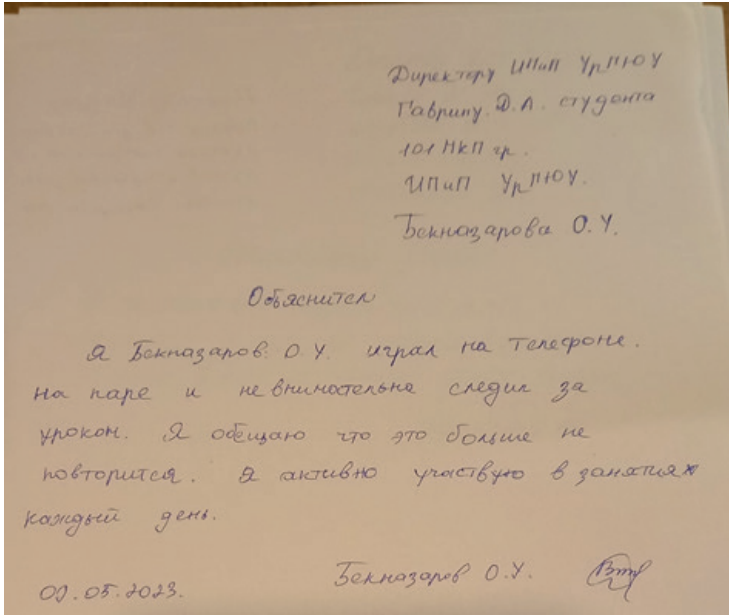 Директору ИПиП УрГЮУ
Гаврину. Д.А. студента
101 НКП гр.
ИПиП УрГЮУ.
Бекназарова О.У.
Обяснител
Я Бекназаров. О.У. играл на телефоне.
на паре и не внимостельна следил за
уроком. Я обещаю что это больше не
повторится. Я активно участвую в занятиях
каждый день.
09.05.2023. Бекназаров О.У.